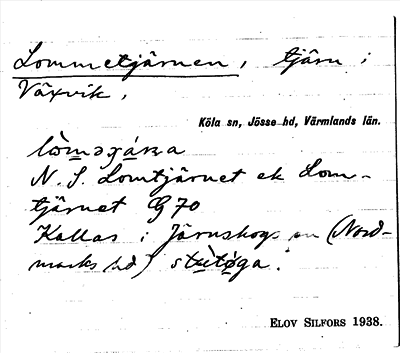 Lommetjärnen, tjärn i
Växvik.
Köla sn, Jösse hd, Värmlands län.
N. S. Lomtjärnet ek Lom-
tjärnet G 70
Kallas i Järnskogs sn (Nord-
marks hd)
ELOV SILFORS 1938.